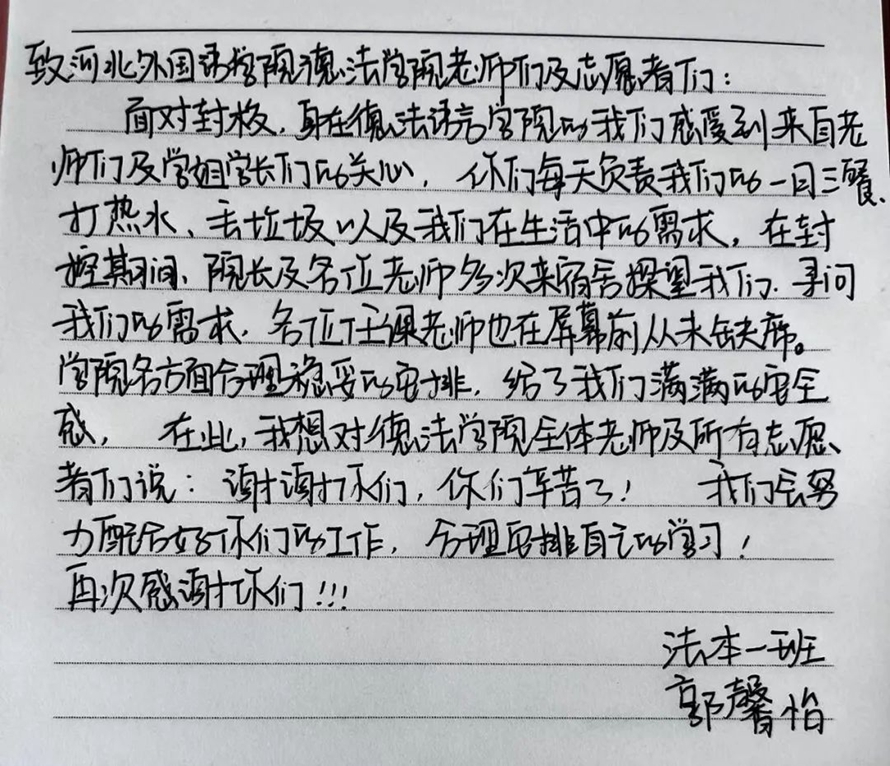 致河北外国语学院德法学院老师们及志愿者们：
面对封校，身在德法语言学院的我们感受到来自老
师们及学姐学长们的关心，你们每天负责我们的一日三餐、
打热水、丢垃圾以及我们在生活中的需求，在封
控期间，院长及各位老师多次来宿舍探望我们，寻问
我们的需求，各位任课老师也在屏幕前从未缺席。
学院各方面合理稳妥的安排，给了我们满满的安全
感， 在此，我想对德法学院全体老师及所有志愿
者们说：谢谢你们，你们辛苦了！ 我们会努
力配合好你们的工作，合理安排自己的学习！
再次感谢你们！！！
法本一班
郭馨怡